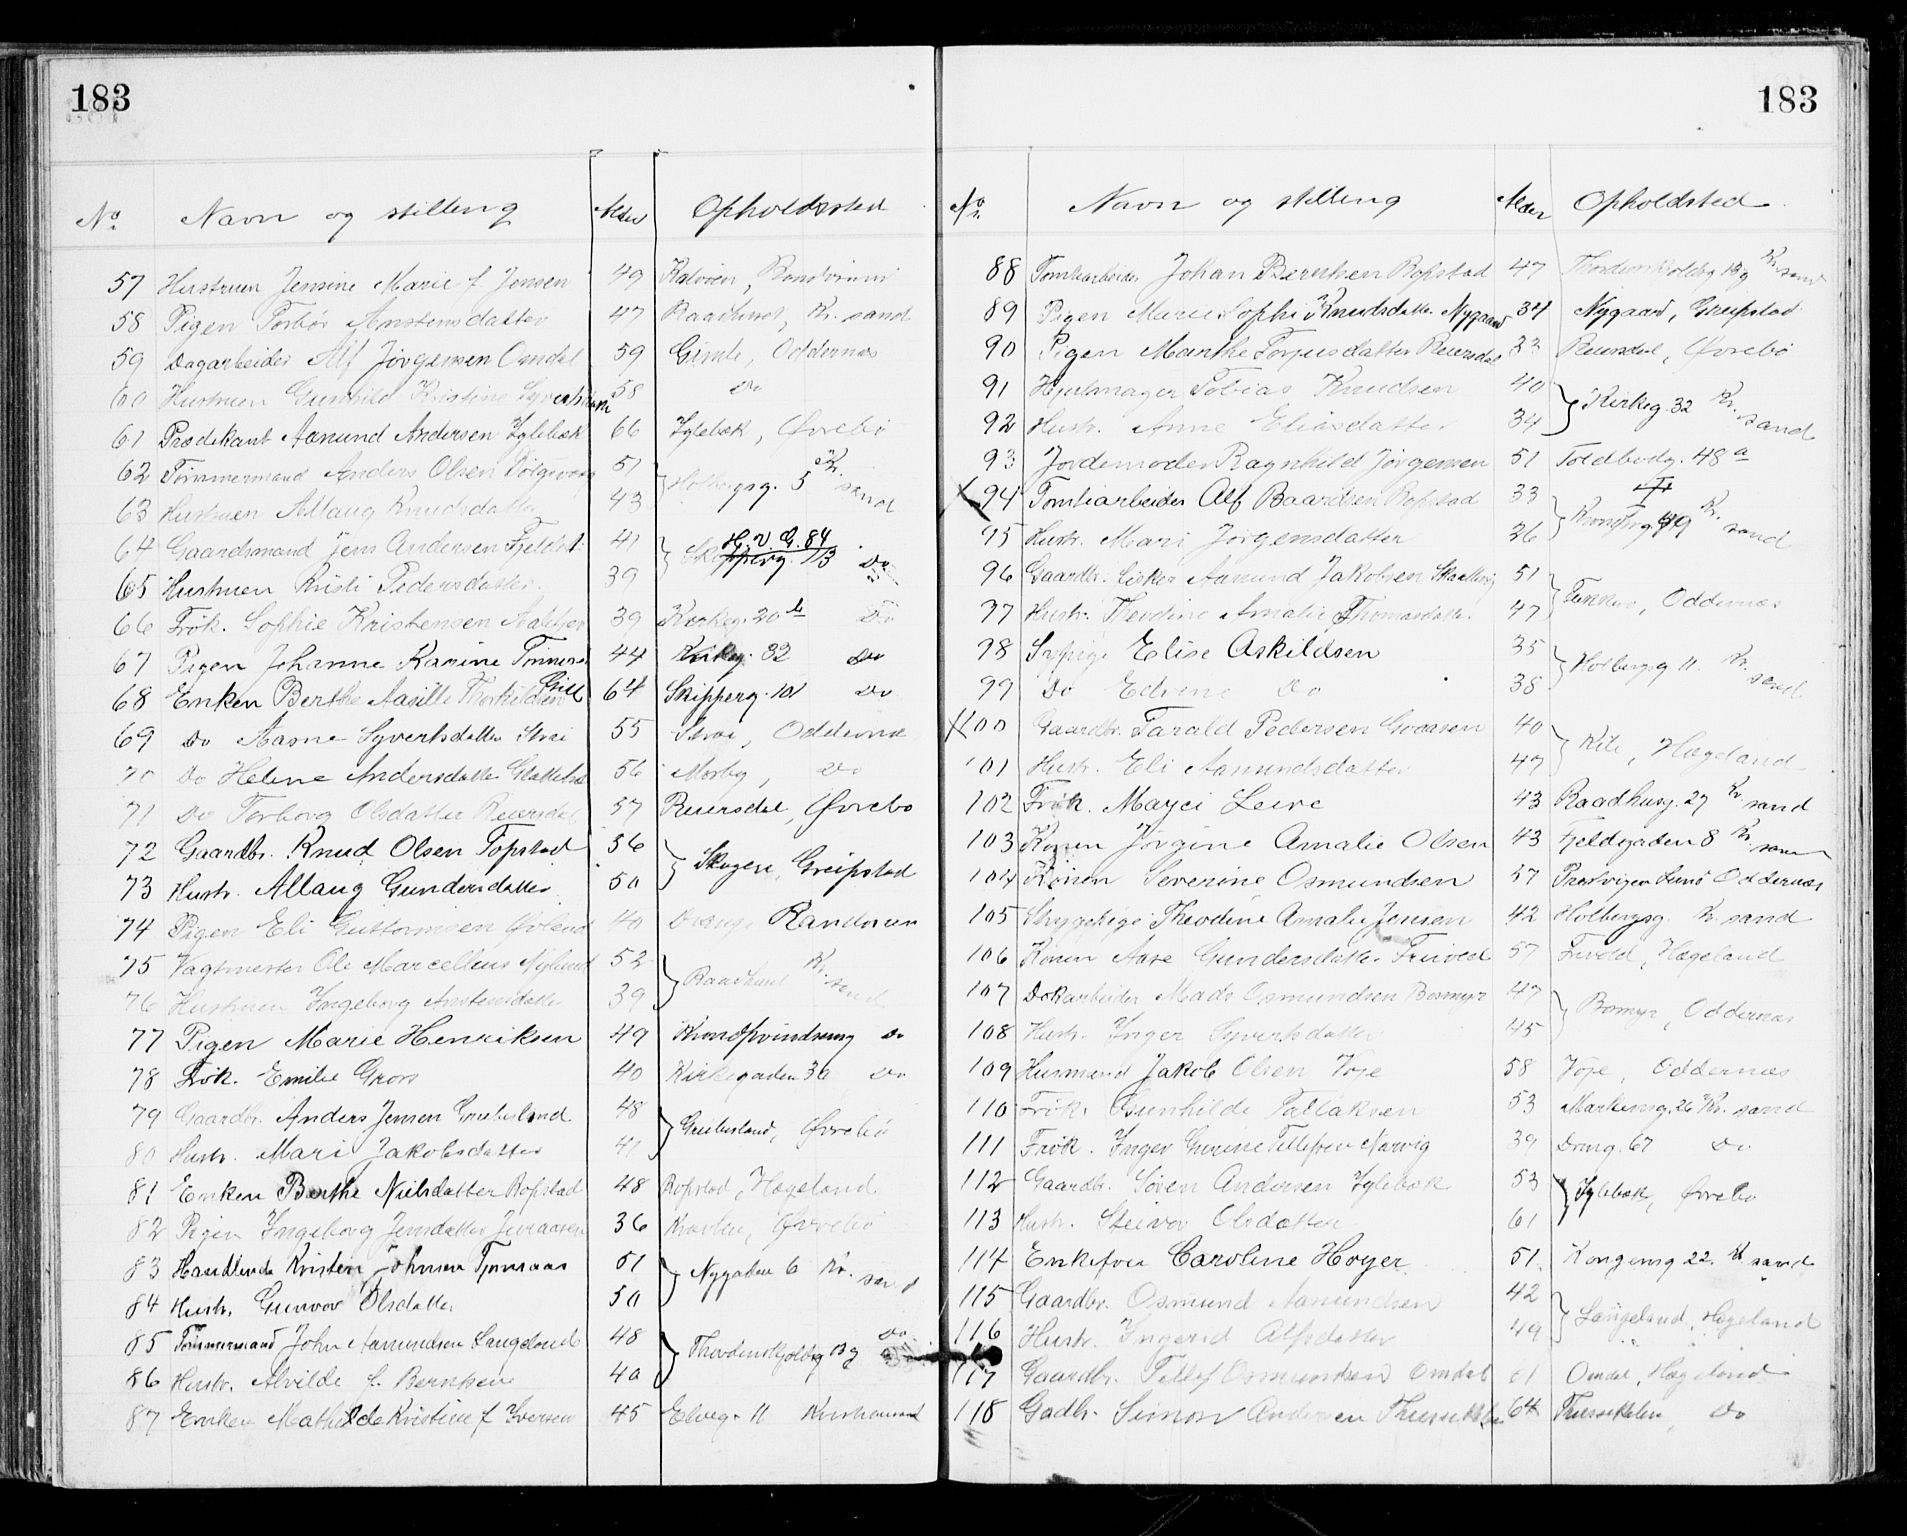 183
No. Navn og stilling Alder Opholdssted
57 Hustruen Jensine Marie f. Jensen 49 Kalvöen, Randösund
58 Pigen Torbör Arnstensdatter 47 Raadhuset, Kr. sand
59 Dagarbeider Alf Jörgensen Omdal 59 Gimle, Oddernæs
60 Hustruen Gunhild Kristine 58 Do
61 Prædikant Aanund Andersen Iglebæk 66 Iglebæk, Övrebö
62 Tömmermand Anders Olsen 51 Holbergsg. 5 Kr. sand
63 Hustruen Allaug Knudsdatter 43
64 Gaardsmand Jens Andersen 41 H. V. G. 84 Do
65 Hustruen Kristi Pedersdatter 39
66 Frök. Sophie Kristensen 39 Kirkeg. 20 b Do
67 Pigen Johanne Kamine 44 Kirkeg. 32 Do
68 Enken Berthe Aasille Thorkildsen 64 Skipperg. 101 Do
69 Do Aasne Syvertsdatter Strai 55 Strai, Oddernæs
70 Do Helene Andersdatter 56 Mosby, Do
71 Do Torborg Olsdatter Reiersdal 57 Reiersdal, Övrebö
72 Gaardbr. Knud Olsen Topstad 56 Greipstad
73 Hustr. Allaug Gundersdatter 50
74 Pigen Eli Guttormsen 40 Randösund
75 Vagtmester Ole Marcellius Nylund 52 Raadhuset Kr. sand
76 Hustruen Ingeborg Arnstensdatter 39
77 Pigen Marie Henriksen 49 Do
78 Frök. Emilie Gross 40 Kirkegaden 36 Do
79 Gaardbr. Anders Jensen Greibesland 48 Greibesland, Övrebö
80 Hustr. Mari Jakobsdatter 41
81 Enken Berthe Nielsdatter Ropstad 48 Ropstad, Hægeland
82 Pigen Ingeborg Jensdatter 36 Övrebö
83 Handlende Kristen Johnsen 51 Nygaden 6 Kr. sand
84 Hustr. Gunvor Olsdatter 50
85 Tömmermand John Aanundsen Langeland 48 Do
86 Hustr. Alvilde f. Berntsen 40
87 Enken Mathilde Kristine f Iversen 45 Elveg. 11 Kristiansand
183
No. Navn og stilling Alder Opholdsted
88 Tomtearbeider Johan Berntsen Ropstad 47 Kr. sand
89 Pigen Marie Sophie Knudsdatter Nygaard 34 Nygaard, Greipstad
90 Pigen Marthe Torjusdatter Reiersdal 33 Reiersdal, Övrebö
91 Hjulmager Tobias Knudsen 40 Kirkeg. 32 Kr. sand
92 Hustr. Anne Eliasdatter 34
93 Jordemoder Ragnhild Jörgensen 51 Toldbodg. 48 a
94 Tomtearbeider Alf Baardsen Ropstad 33 Kr. sand
95 Hustr. Mari Jörgensdatter 26
96 Gaardbr. Aanund Jakobsen 51 Oddernæs
97 Hustr. Theodine Amalie Thomasdatter 47
98 Elise Askildsen 35 Holbergsg 11. Kr. sand
99 Do Edvine Do 38
100 Gaardbr. Tarald Pedersen 40 Hægeland
101 Hustr. Eli Aanundsdatter 47
102 Frök. 43 Raadhusg. 27 Kr. sand
103 Konen Jörgine Amalie Olsen 43 Fjeldgaden 8 Kr. sand
104 Konen Severine Osmundsen 57 Oddernæs
105 Strygepige Theodine Amalie Jensen 42 Holbergsg. Kr. sand
106 Konen Aase Gundersdatter 57 Hægeland
107 Dokarbeider Mads Osmundsen Bosmyr 47 Bosmyr, Oddernæs
108 Hustr. Inger Syvertsdatter 45
109 Husmand Jakob Olsen Voje 58 Voje, Oddernæs
110 Frök. Gunhilde Tallaksen 53 Markensg. 26 Kr. sand
111 Frök. Inger Tellefsen 39 Drong. 67 Do
112 Gaardbr. Sören Andersen Iglebæk 53 Iglebæk, Övrebö
113 Hustr. Steinvor Olsdatter 61
114 Enkefru Caroline Höyer 51 Kongensg 22. Kr sand
115 Gaardbr. Osmund Aanundsen 42 Langeland, Hægeland
116 Hustr. Ingerid Alfsdatter 49
117 Gaardbr. Tellef Osmundsen Omdal 61 Omdal, Hægeland
118 Gadbr. Simon Andersen 64 Do